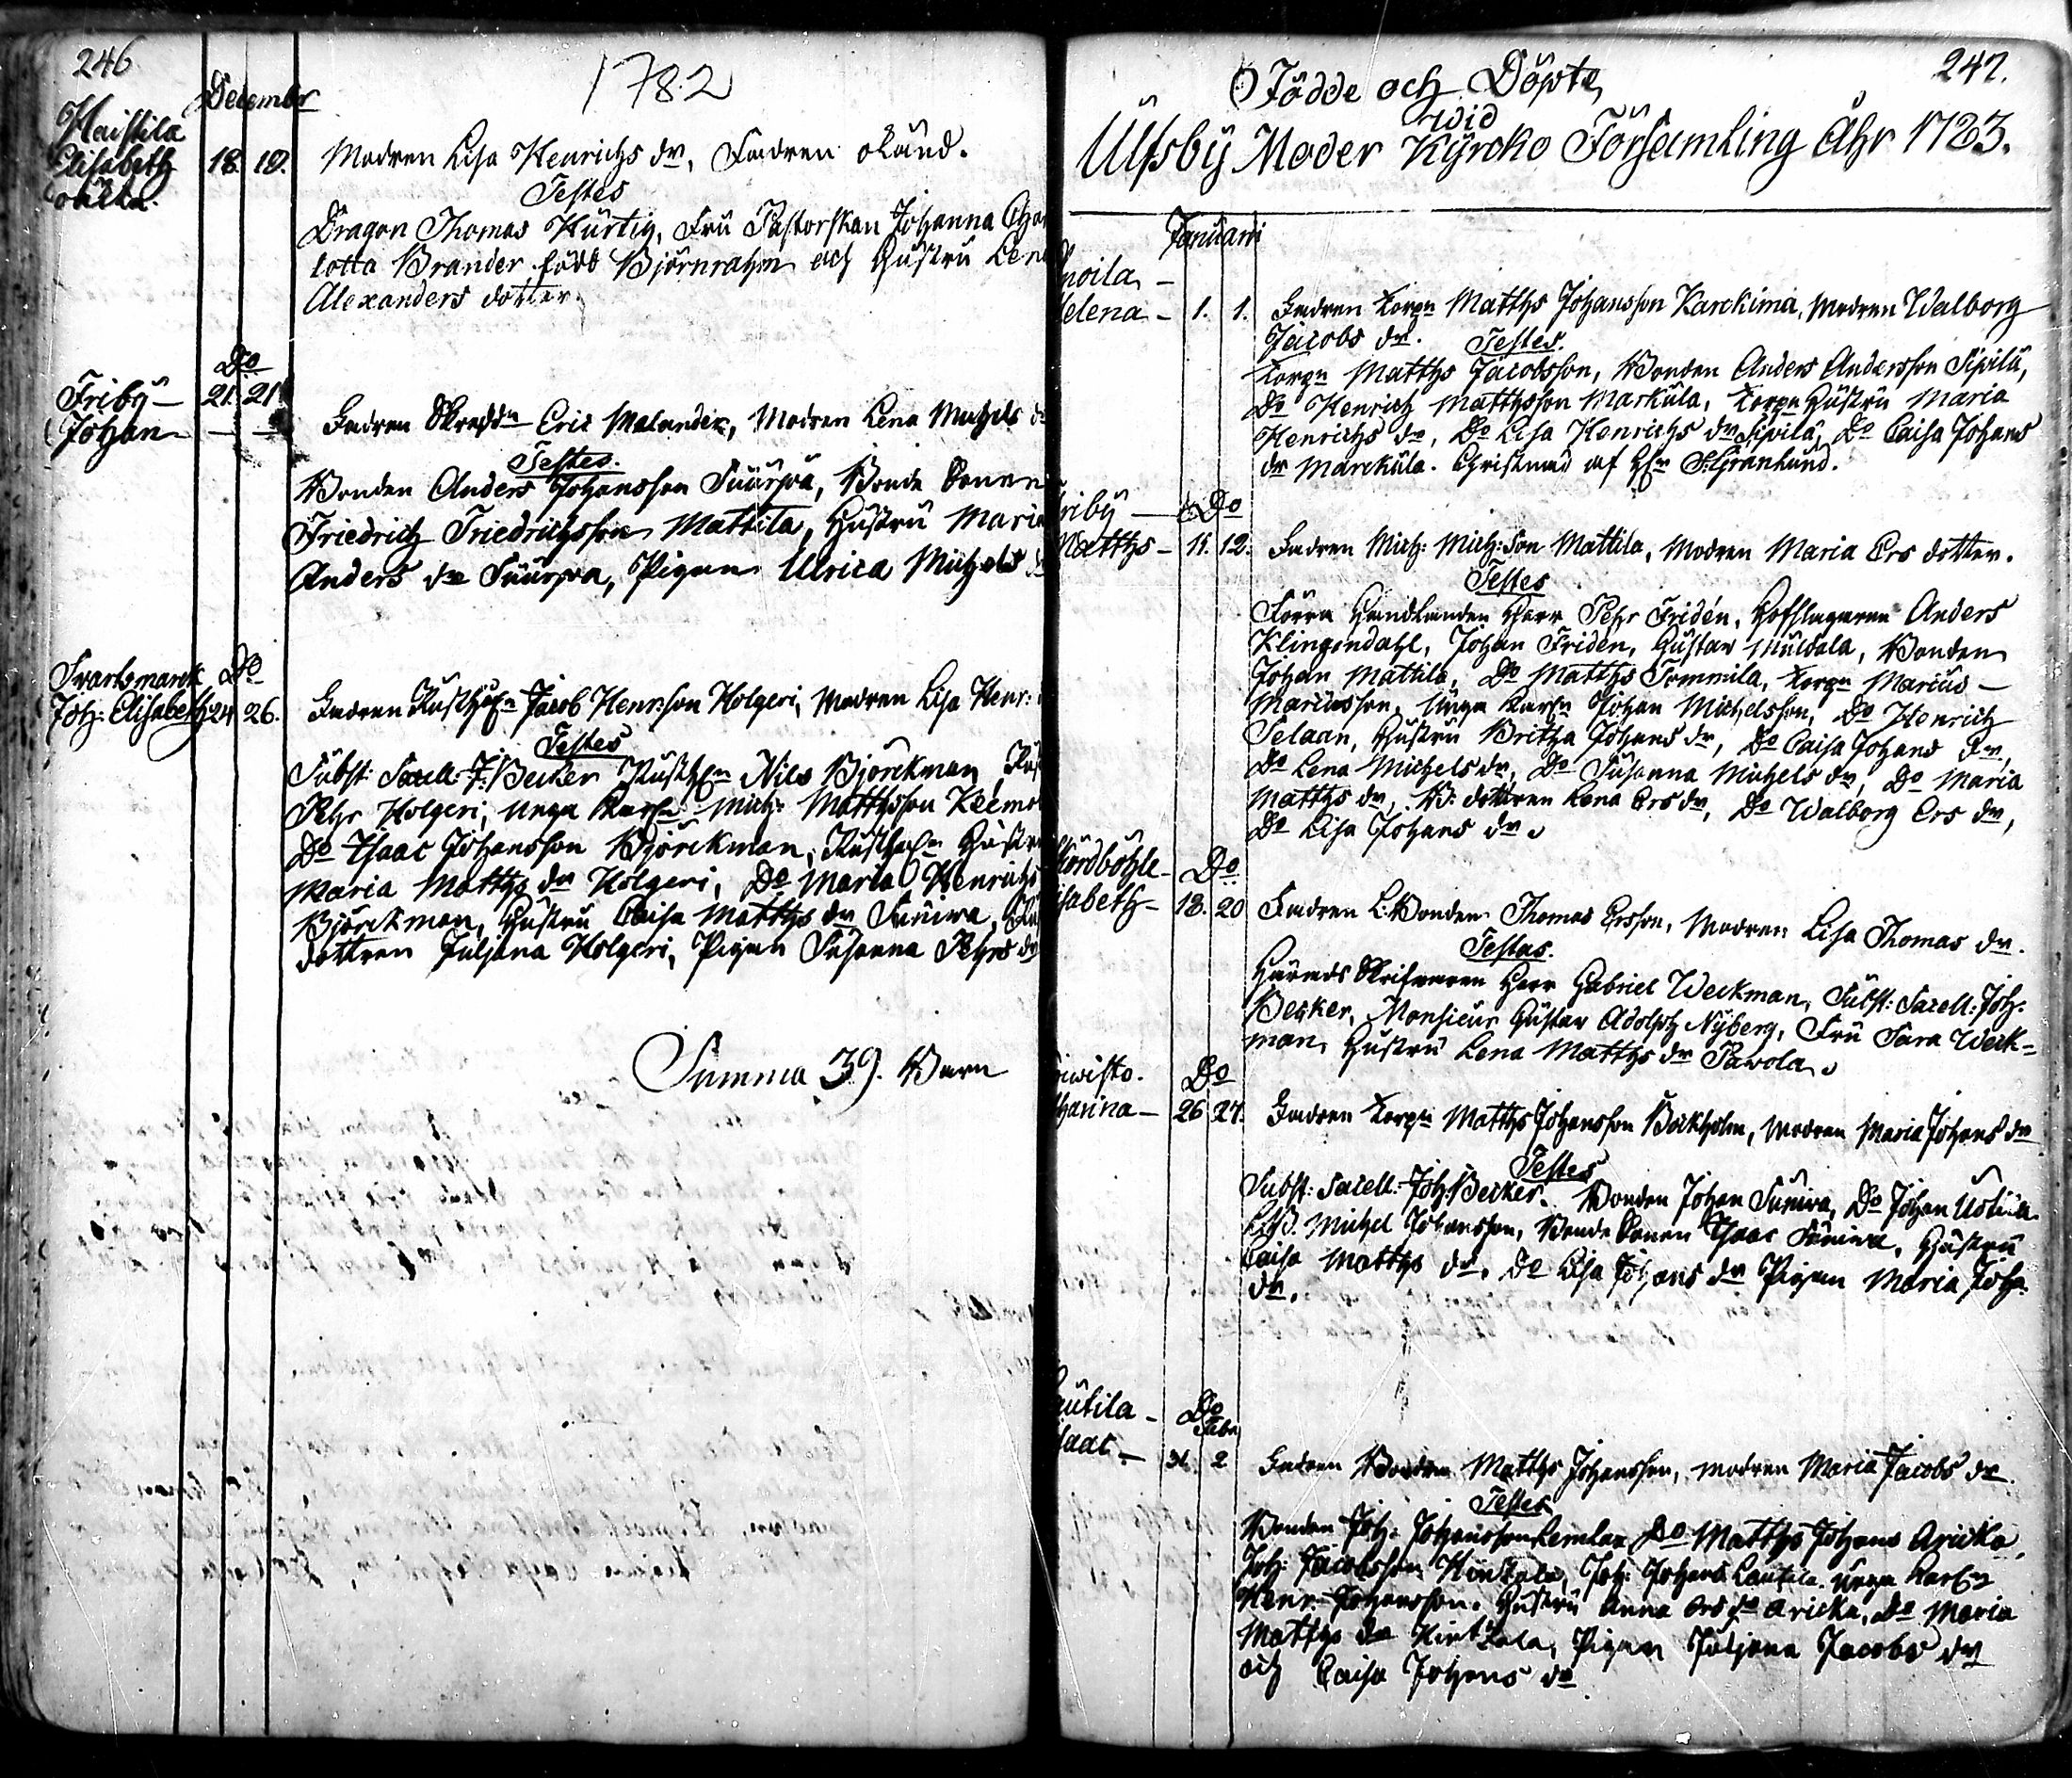 246
1782
Decembr
Haistila
Elisabeth 18. 19. Modren Lisa Henrichs dr, Fadren okänd.
oäkta.
Testes
Dragon Thomas Hurtig, Fru Pastorskan Johanna Char
lotta Brander född Björnrahm och Hustru Lena
Alexanders dotter
Do
Friby 21. 21
Johan Fadren Skreddn Eric Malander, Modren Lena Michels dr
Testes.
Bonden Anders Johansson Suurpä, Bonde Sonen
Friedrich Friedrichsson Mattila, Hustru Maria
Anders dr Suurpä, Pigan Ulrica Michels dr
Svartsmarck Do
Joh: Elisabeth 24. 26. Fadren Rusthn Jacob Henr:son Holgeri, Modren Lisa Henr:
Testes
Subst: Sacell: J: Becker Rusthn Nils Björckman,
Pehr Holgeri, unga Karln Mich: Matthsson
Do Isaac Johansson Björckman, Rusthn Hustru
Maria Matths dr Holgeri, Do Maria Henrichs
Björckman, Hustru Caisa Matths dr Suniva,
dottren Juljana Holgeri, Pigan Susanna Pehrs dr
Summa 39. Barn
247.
Födde och Döpte
wid
Ulfsby Moder Kyrcko Församling Åhr 1783.
Januarii
noila
Helena 1. 1. Fadren Torpn Matths Johansson Karckima, Modren Walborg
Jacobs dr. Testes.
Torpn Matths Jacobsson, Bonden Anders Andersson Sipilä,
Do Henrich Matthsson Markula, Torpn Hustru Maria
Henrichs dr, Do Lisa Henrichs dr Sipilä, Do Caisa Johans
dr Marckula. Christnad af Hr S: Granlund.
riby Do
Matths 11. 12. Fadren Mich: Mich:son Mattila, Modren Maria Ers dotter.
Testes
Förra Handlanden Herr Pehr Fridén, Hofslagaren Anders
Klingendahl, Johan Fridén, Gustav Muldala, Bonden
Johan Mattila, Do Matths Tommila, Torpn Marcus
Marcusson, Unga Karln Johan Michelsson, Do Henrich
Selaan, Hustru Britha Johans dr, Do Caisa Johans dr,
Do Lena Michels dr, Do Susanna Michels dr, Do Maria
Matths dr, B: dottren Lena Ers dr, Do Walborg Ers dr,
Do Lisa Johans dr.
ordböhle Do
isabeth 18. 20 Fadren L: Bonden Thomas Ersson, Modren Lisa Thomas dr.
Testes.
Härads Skrifvaren Herr Gabriel Weckman, Subst: Sacell: Joh:
Becker, Monsieur Gustav Adolph Nyberg, Fru Sara Weck=
man, Hustru Lena Matths dr Pavola.
iwisto. Do
tharina 26 27. Fadren Torpn Matths Johansson Böckholm, Modren Maria Johans dr
Testes
Subst: Sacell: Joh: Becker. Bonden Johan Suniva, Do Johan
L: B. Michel Johansson, Bonde Sonen Isaac Suniva, Hustru
Caisa Matths dr, Do Lisa Johans dr Pigan Maria Joh:
dr.
autila Do
Febr
Isaac 31. 2 Fadren Bonden Matths Johansson, Modren Maria Jacobs dr.
Testes
Bonden Joh: Johansson Do Matths Johans Aricka,
Joh: Jacobsson Hintzala, Joh: Johans Lautila. Unga Karln
Henr: Johansson. Hustru Anna Ers dr Aricka, Do Maria
Matths dr Hintzala, Pigan Juljana Jacobs dr
och Caisa Johans dr